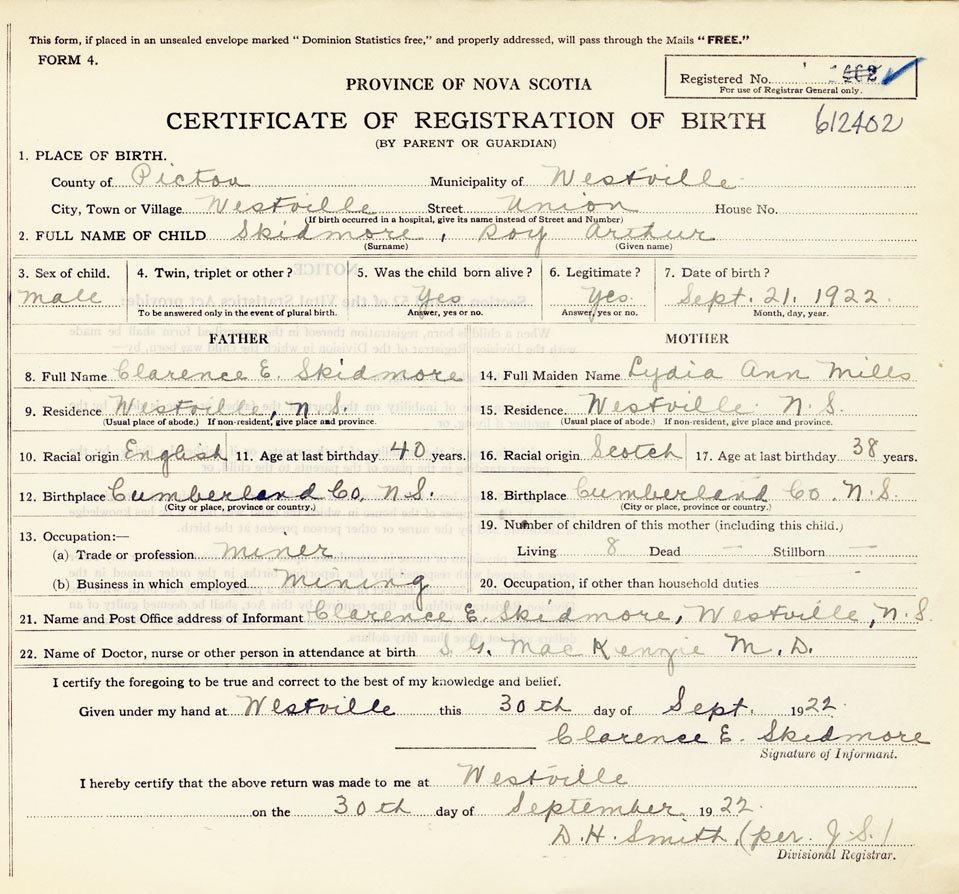 This form, if placed in an unsealed envelope marked "Dominion Statistics free," and properly addressed, will pass through the Mails "FREE."
FORM 4.
PROVINCE OF NOVA SCOTIA
Registered No.
For use of Registrar General only.
CERTIFICATE OF REGISTRATION OF BIRTH 612402
(BY PARENT OR GUARDIAN)
1. PLACE OF BIRTH.
County of Pictou Municipality of Westville
City, Town or Village Westville Street Union House No.
(If birth occurred in a hospital, give its name instead of Street and Number)
2. FULL NAME OF CHILD Skidmore, Roy Arthur
(Surname) (Given name)
3. Sex of child. 4. Twin, triplet or other? 5. Was the child born alive? 6. Legitimate? 7. Date of birth?
male Yes Yes. Sept. 21. 1922.
To be answered only in the event of plural birth. Answer, yes or no. Answer, yes or no. Month, day, year.
FATHER MOTHER
8. Full Name Clarence E. Skidmore 14. Full Maiden Name Lydia Ann Mills
9. Residence Westville, N.S. 15. Residence. Westville N.S.
(Usual place of abode.) If non-resident, give place and province. (Usual place of abode.) If non-resident, give place and province.
10. Racial origin English 11. Age at last birthday 40 years. 16. Racial origin Scotch 17. Age at last birthday 38 years.
12. Birthplace Cumberland Co, N.S. 18. Birthplace Cumberland Co. N.S.
(City or place, province or country.) (City or place, province or country.)
19. Number of children of this mother (including this child.)
13. Occupation:—
(a) Trade or profession miner Living 8 Dead — Stillborn —
(b) Business in which employed mining 20. Occupation, if other than household duties
21. Name and Post Office address of Informant Clarence E. Skidmore, Westville, N.S.
22. Name of Doctor, nurse or other person in attendance at birth S. G. MacKenzie M.D.
I certify the foregoing to be true and correct to the best of my knowledge and belief.
Given under my hand at Westville this 30th day of Sept. 1922.
Clarence E. Skidmore
Signature of Informant.
I hereby certify that the above return was made to me at Westville
on the 30th day of September 1922.
D.H. Smith, (per J.S.)
Divisional Registrar.